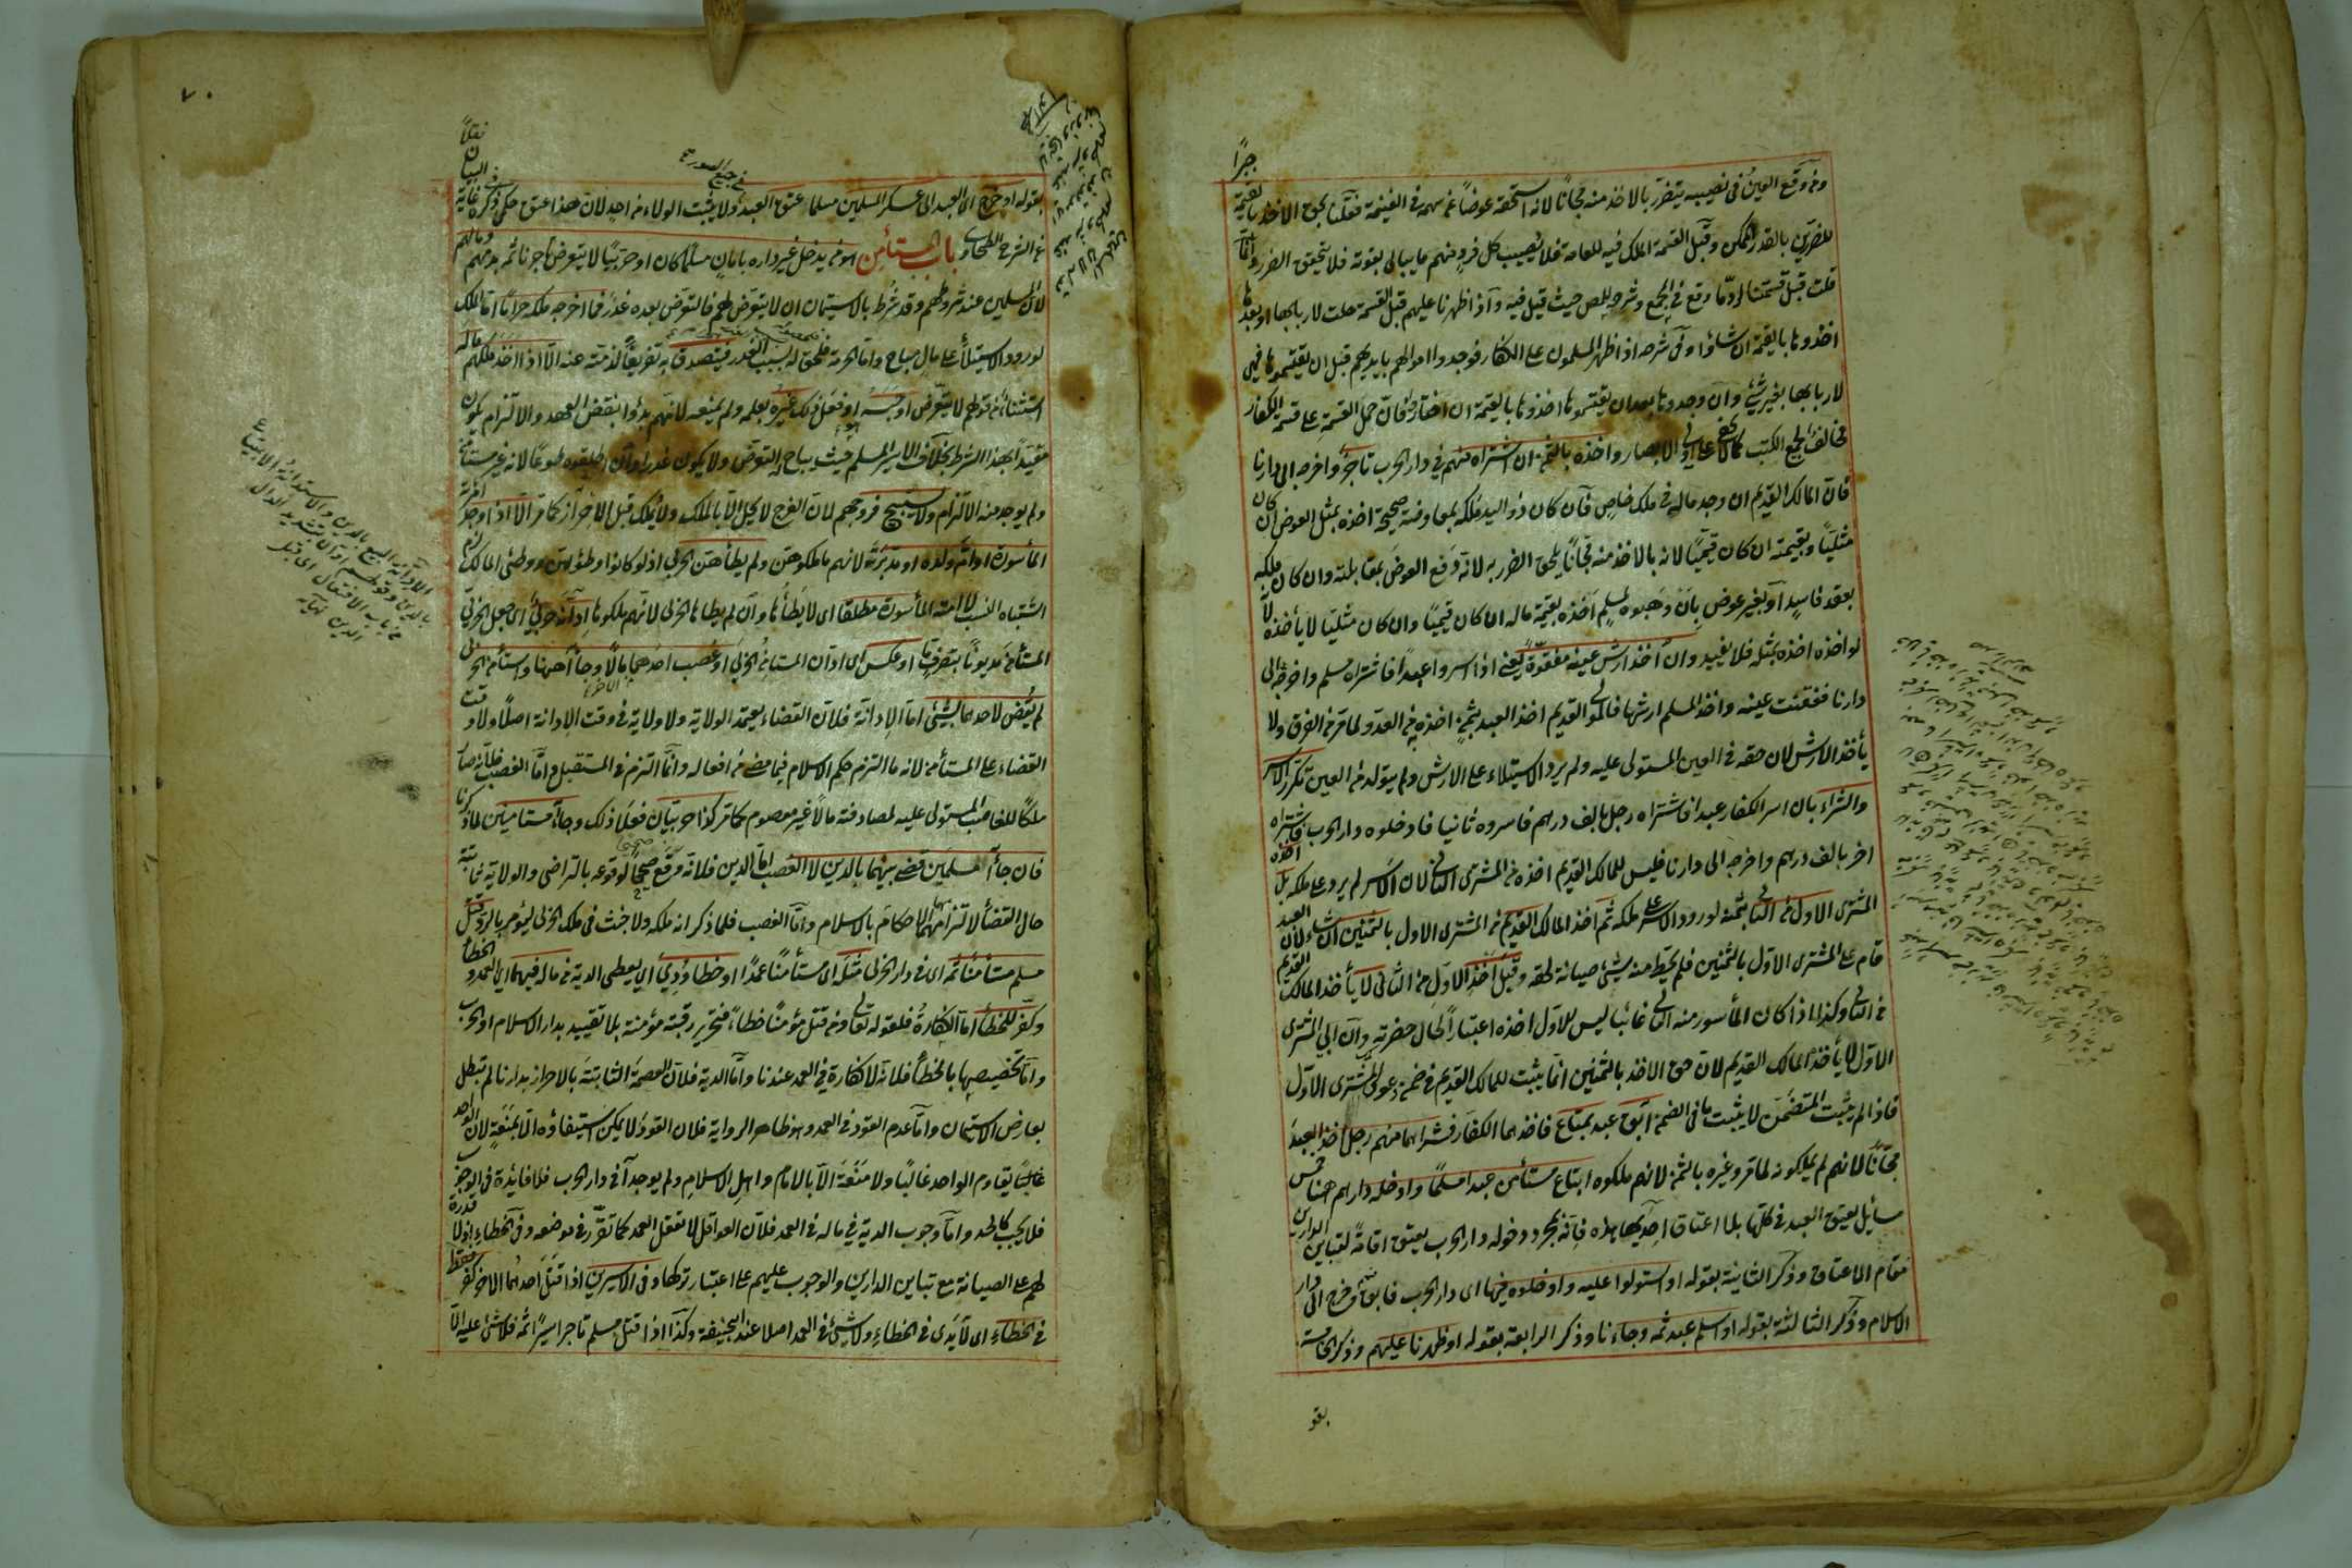 جبرًا
ومن وقع العين في نصيبه يتضرر بالاخذ منه مجانا لانه استحقه عوضا عن سهمه في الغنيمة فقلنا بحق الاخذ بالقيمة
للضررين بالقدر الممكن وقبل القسمة الملك فيه للعامة فلا يصيب كل فرد منهم ما يبالى بفوته فلا يتحقق الضرر وانما
قلت قبل قسمتنا لردّ ما وقع في المجمع وشرحه للمص حيث قيل فيه واذا ظهرنا عليهم قبل القسمة حلت لاربابها او بعدها
اخذوها بالقيمة ان شاؤا وفى شرحه اذا ظهر المسلمون على الكفار فوجدوا اموالهم بايديهم قبل ان يقتسموها فهى
لاربابها بغير شئ وان وجدوها بعد ان يقتسموها اخذوها بالقيمة ان اختاروا فان حمل القسمة على قسمة الكفار
مخالف لجميع الكتب كما لا يخفى على اولى الابصار واخذه بالثمن ان اشتراه منهم في دار الحرب تاجر واخرجه الى دارنا
فان المالك القديم ان وجد ماله في ملك خاص فان كان ذو اليد ملكه بمعاوضة صحيحة اخذه بمثل العوض ان كان
مثليا وبقيمته ان كان قيميا لانه بالاخذ منه مجانا يلحق الضرر به لانه دفع العوض بمقابلته وان كان ملكه
بعقد فاسد او بغير عوض بان وهبوه لمسلم اخذه بقيمة ماله ان كان قيميا وان كان مثليا لا يأخذه لانه
لو اخذه اخذه بمثله فلا يفيد وان اخذ ارش عينه مفقوءة يعنى اذا اسروا عبدا فاشتراه مسلم واخرجه الى
دارنا ففقئت عينه واخذ المسلم ارشها فالمولى القديم اخذ العبد بثمن اخذه به من العدو لما مر من الفرق ولا
يأخذ الارش لان حقه في العين المستولى عليه ولم يرد الاستيلاء على الارش ولم يتولد من العين تكرر الاسر
والشراء بان اسر الكفار عبدا فاشتراه رجل بالف درهم فاسروه ثانيا فادخلوه دار الحرب فاشتراه
اخر بالف درهم واخرجه الى دارنا فليس للمالك القديم اخذه من المشترى الثانى لان الاسر لم يرد على ملكه بل اخذه
المشترى الاول من الثانى بثمنه لورود الاسر على ملكه ثم اخذ المالك القديم من المشترى الاول بالثمنين ان شاء لان العبد
قام على المشترى الاول بالثمنين فلم يحط منه شئ صيانة لحقه وقبل اخذ الاول من الثانى لا يأخذ المالك القديم
من الثانى وكذا اذا كان المأسور منه الثانى غائبا ليس للاول اخذه اعتبارا لحال حضرته وان ابى المشترى
الاول لا يأخذ المالك القديم لان حق الاخذ بالثمنين انما يثبت للمالك القديم في ضمن عود ملك المشترى الاول
فاذا لم يثبت المتضمن لا يثبت ما في الضمن ابق عبد بمتاع فاخذهما الكفار فشراهما منهم رجل اخذ العبد
مجانا لانهم لم يملكونه لما مر وغيره بالثمن لانهم ملكوه ابتاع مستأمن عبدا مسلما وادخله دارهم هنا خمس
مسائل يعتق العبد في كلها بلا اعتاق احديها هذه فانه بمجرد دخوله دار الحرب يعتق اقامة لتباين الدارين
مقام الاعتاق وذكر الثانية بقوله او استولوا عليه وادخلوه فيها اى دار الحرب فابق ثم خرج الى دار
الاسلام وذكر الثالثة بقوله او اسلم عبد ثمه وجاءنا وذكر الرابعة بقوله او ظهرنا عليهم وذكر الخامسة
بقو
٧٠
في جميع الصور
بقوله او خرج اى العبد الى عسكر المسلمين مسلما عتق العبد ولا يثبت الولاء من احد لان هذا عتق حكمى ذكره في غاية البيان نقلًا
عن شرح الطحاوى باب المستأمن هو من يدخل غير داره بامان مسلما كان او حربيا لا يتعرض تاجرنا ثمه بدمهم ومالهم
لان المسلمين عند شروطهم وقد شرط بالاستيمان ان لا يتعرض لهم فالتعرض بعده غدر فما اخرجه ملكه حراما اما الملك
لورود الاستيلاء على مال مباح واما الحرمة فلحقه له بسبب الغدر فيتصدق به تفريغا لذمته عنه الا اذا اخذ ملكهم ماله
استثناء من قوله لا يتعرض او حبسه او فعل ذلك غيره بعلمه ولم يمنعه لانهم بدؤا بنقض العهد والالتزام يكون
مقيدا بهذا الشرط بخلاف الاسير المسلم حيث يباح له التعرض ولا يكون غدرا وان اطلقوه طوعا لانه غير مستأمن
ولم يوجد منه الالتزام ولا يستبيح فروجهم لان الفرج لا يحل الا بالملك ولا ملك قبل الاحراز كما مر الا اذا وجد امرأته
المأسورة او ام ولده او مدبرته لانهم ما ملكوهن ولم يطأهن الحربى اذ لو كانوا وطؤهن ووطئ المالك لزم
اشتباه النسب لا امته المأسورة مطلقا اى لا يطأها وان لم يطأها الحربى لانهم ملكوها ادانه حربى اى جعل الحربى
المستأمن مديونا بتصرف ما او عكس اى ادان المستأمن الحربى او غصب احدهما مالا وجاآ ههنا واستأمن الحربى
لم يقض لاحدهما بشئ اما الادانة فلان القضاء يعتمد الولاية ولا ولاية في وقت الادانة اصلا ولا وقت
القضاء على المستأمن لانه ما التزم حكم الاسلام فيما مضى من افعاله وانما التزم في المستقبل واما الغصب فلانه صار
ملكا للغاصب المستولى عليه لمصادفته مالا غير معصوم كما مر كذا حربيان فعلا ذلك وجاآ مستأمنين لما ذكرنا
فان جاآ مسلمين قضى بينهما بالدين لا الغصب اما الدين فلانه وقع صحيحا لوقوعه بالتراضى والولاية ثابتة
حال القضاء لالتزامهما الاحكام بالاسلام واما الغصب فلما ذكر انه ملكه ولا خبث في ملك الحربى ليؤمر بالرد قتل
مسلم مستأمنا ثمه اى في دار الحرب مثله اى مستأمنا عمدا او خطأ ودى اى يعطى الدية من ماله فيهما اى العمد والخطأ
وكفر للخطأ اما الكفارة فلقوله تعالى ومن قتل مؤمنا خطاء فتحرير رقبة مؤمنة بلا تقييد بدار الاسلام او الحرب
واما تخصيصها بالخطأ فلانه لا كفارة في العمد عندنا واما الدية فلان العصمة الثابتة بالاحراز بدارنا لم تبطل
بعارض الاستيمان واما عدم القود في العمد وهو ظاهر الرواية فلان القود لا يمكن استيفاؤه الا بمنعة لان الواحد
غالبا يقاوم الواحد غالبا ولا منعة الا بالامام واهل الاسلام ولم يوجد في دار الحرب فلا فائدة في الوجوب
فلا يجب كالحد واما وجوب الدية في ماله في العمد فلان العواقل لا تعقل العمد كما تقرر في موضعه وفى الخطاء اذ لا قدرة
لهم على الصيانة مع تباين الدارين والوجوب عليهم على اعتبار تركها وفى الاسيرين اذا قتل احدهما الاخر كفر فقط
في الخطاء اى لا يدى في الخطاء ولا شئ في العمد اصلا عند ابى حنيفة وكذا اذا قتل مسلم تاجر اسيرا ثمه فلا شئ عليه الا